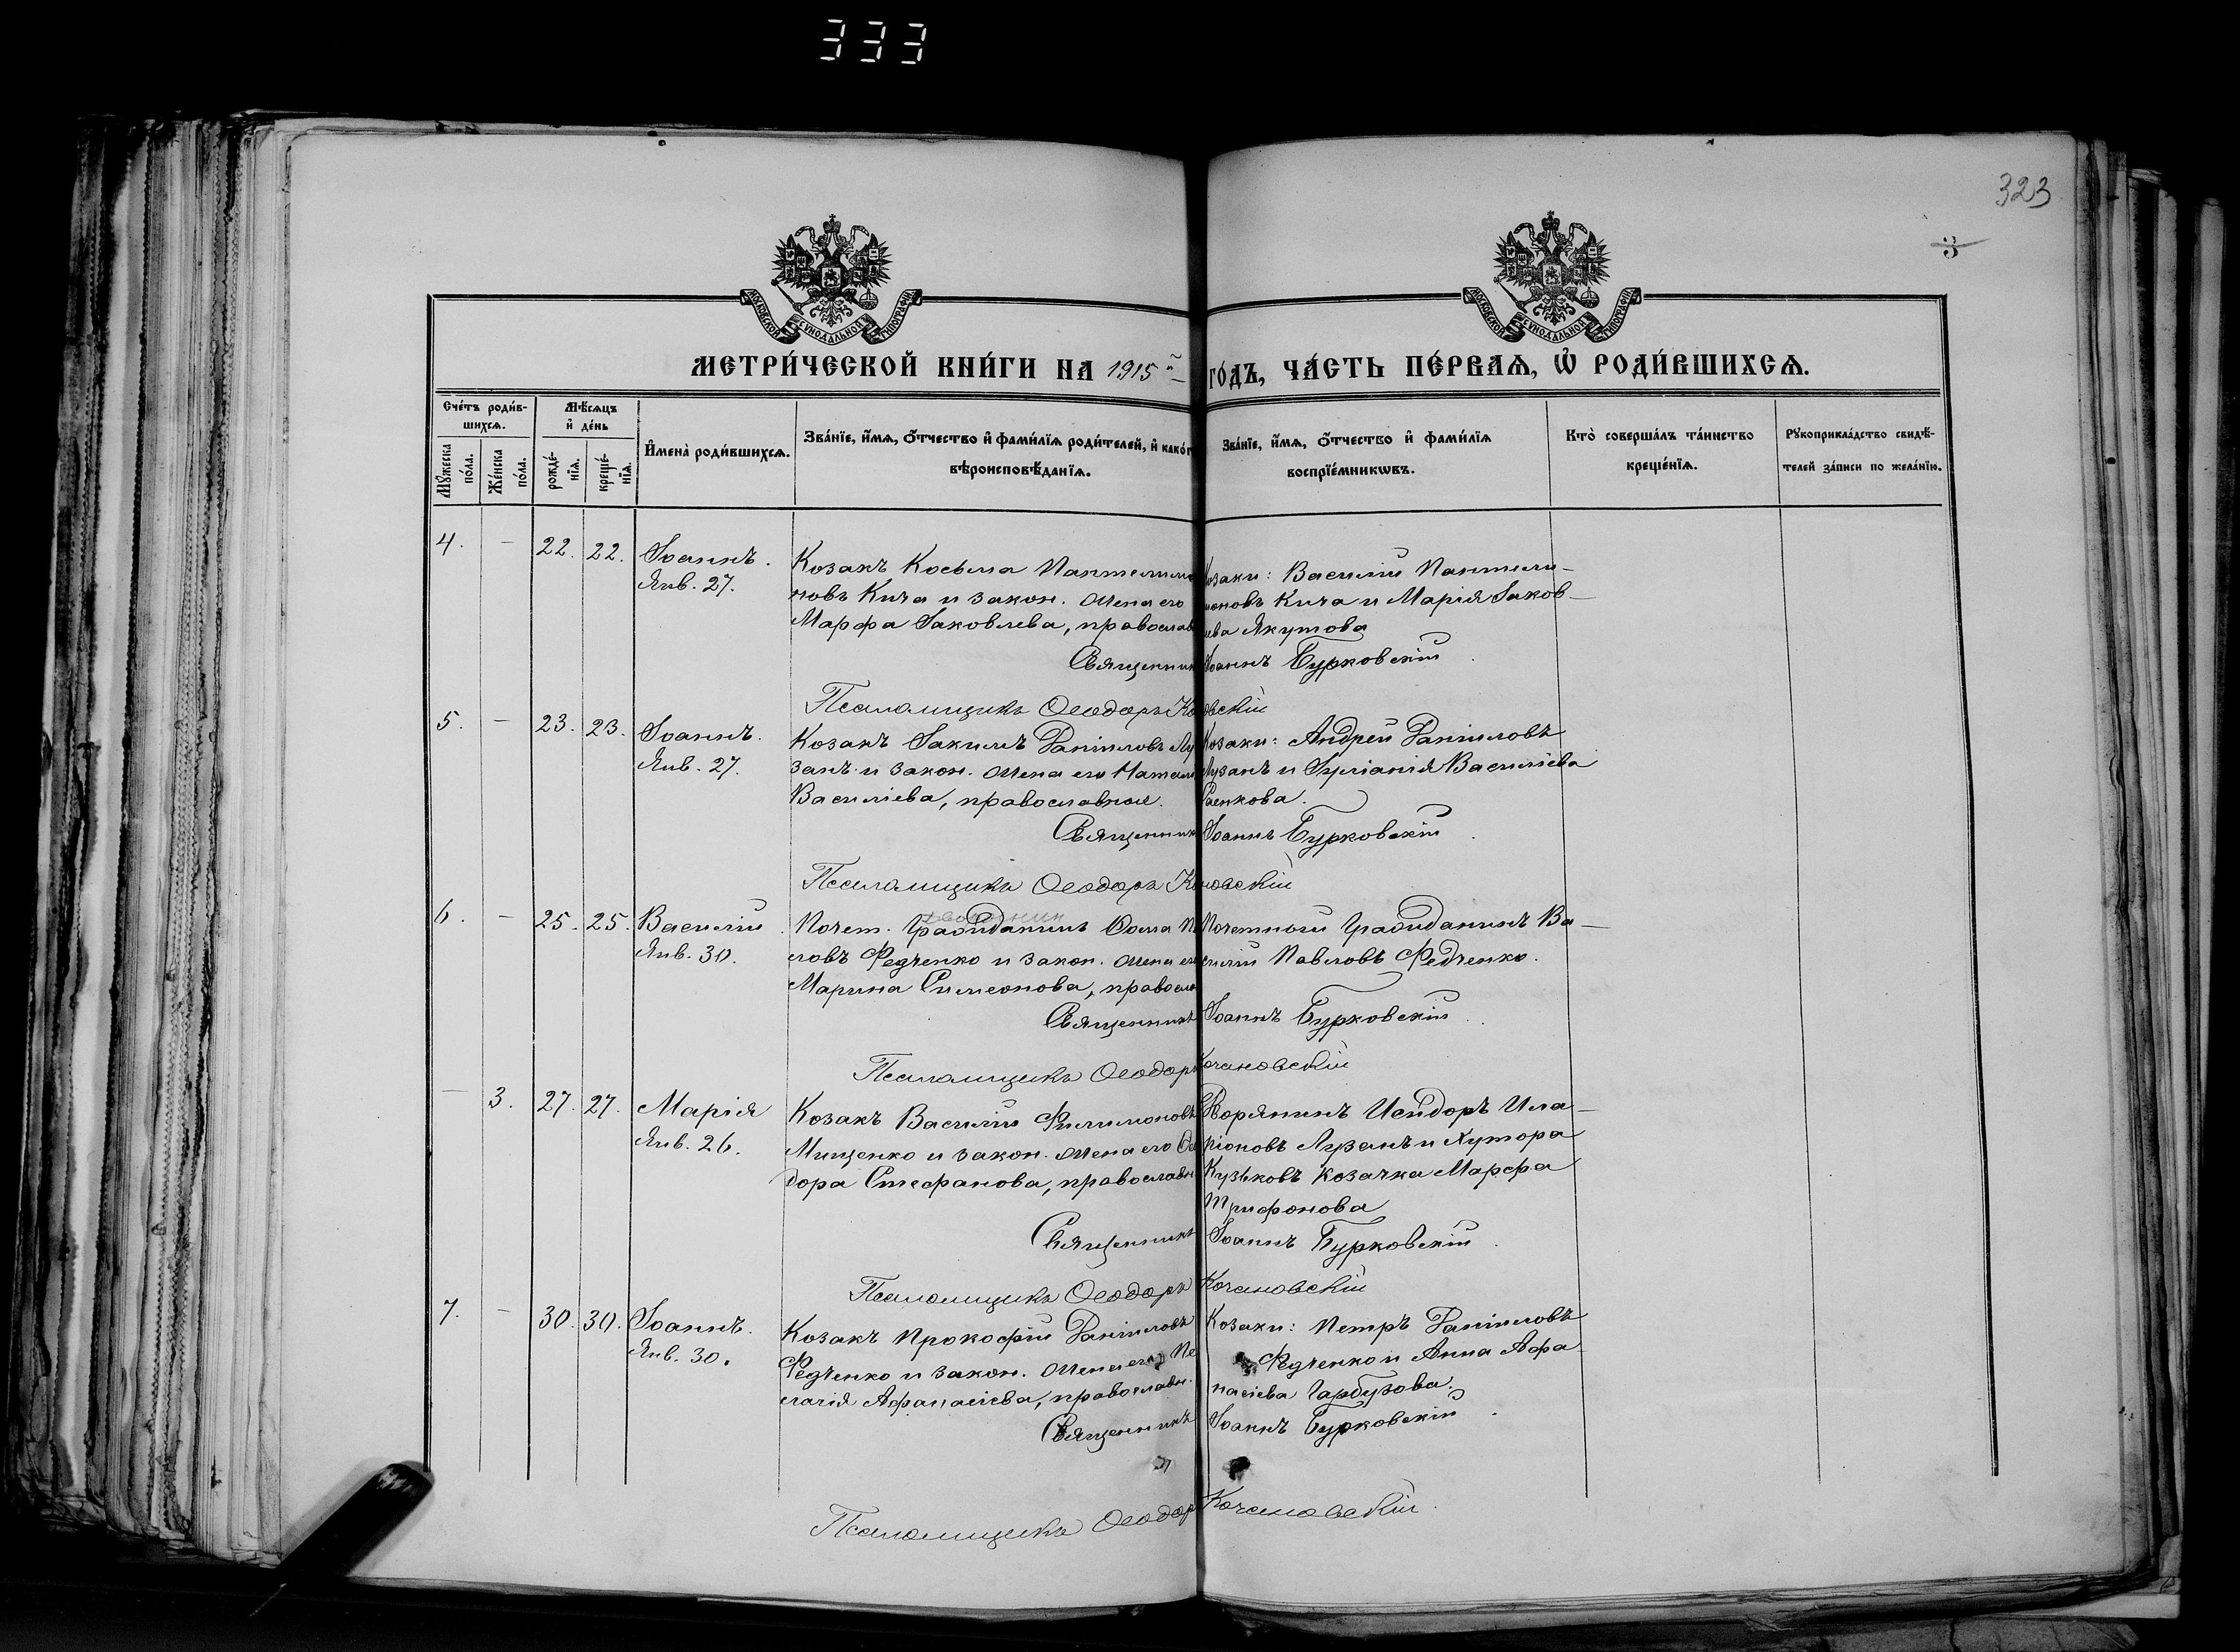 333
323
3
МОСКОВСКОЙ СѴНОДАЛЬНОЙ ТИПОГРАФІИ
МОСКОВСКОЙ СѴНОДАЛЬНОЙ ТИПОГРАФІИ
МЕТРИ́ЧЕСКОЙ КНИ́ГИ НА 1915й ГО́ДЪ, ЧА́СТЬ ПЕ́РВАѦ, Ѽ РОДИ́ВШИХСѦ.
Сче́тъ роди́в-
шихсѧ.
Мꙋ́жеска по́ла.
Же́нска по́ла.
Мѣ́сѧцъ
и҆ де́нь
рожде́-
нїѧ.
креще́-
нїѧ.
И҆мена̀ роди́вшихсѧ.
Зва́нїе, и҆́мѧ, ѻ҆́тчество и҆ фами́лїѧ роди́телей, и҆ како́г
вѣроисповѣ́данїѧ.
Зва́нїе, и҆́мѧ, ѻ҆́тчество и҆ фами́лїѧ
воспрїе́мникѡвъ.
Кто̀ соверша́лъ та́инство
креще́нїѧ.
Рꙋкоприкла́дство свидѣ́-
телей за́писи по жела́нїю.
4. — 22. 22. Іоаннъ.
Янв. 27.
Козакъ Косьма Пантелимо
новъ Кича и закон. жена его
Марфа Іаковлева, православ
Козаки: Василій Пантели-
моновъ Кича и Марія Іаков-
лева Якутова
Священник Іоаннъ Бурковскій
Псаломщикъ Ѳеодоръ Ко овскій
5. — 23. 23. Іоаннъ.
Янв. 27.
Козакъ Іакимъ Даніиловъ Лу
занъ и закон. жена его Натал
Василіева, православные.
Козаки: Андрей Даніиловъ
Лузанъ и Іуліанія Василіева
Саенкова.
Священник Іоаннъ Бурковскій
Псаломщикъ Ѳеодоръ К новскій
6. — 25. 25. Василій
Янв. 30.
Почет. гражданинъ Ѳома П
ловъ Федченко и закон. жена ег
Марина Симеонова, правосл
Почетный гражданинъ Ва-
силій Павловъ Федченко.
Священникъ Іоаннъ Бурковскій
Псаломщикъ Ѳеодоръ Кочановскій
— 3. 27. 27. Марія
Янв. 26.
Козакъ Василій Филимоновъ
Мищенко и закон. жена его Ѳео
дора Стефанова, православн
Дворянинъ Исидоръ Ила-
ріоновъ Лузанъ и хутора
Кузьковъ козачка Марфа
Трифонова
Священникъ Іоаннъ Бурковскій
Псаломщикъ Ѳеодоръ Кочановскій
7. — 30. 30. Іоаннъ.
Янв. 30.
Козакъ Прокофій Даніиловъ
Федченко и закон. жена его Пе
лагія Афанасіева, православн.
Козаки: Петръ Даніиловъ
Федченко и Анна Афа
насіева Гарбузова.
Священникъ Іоаннъ Бурковскій
Псаломщикъ Ѳеодор Кочановскій.